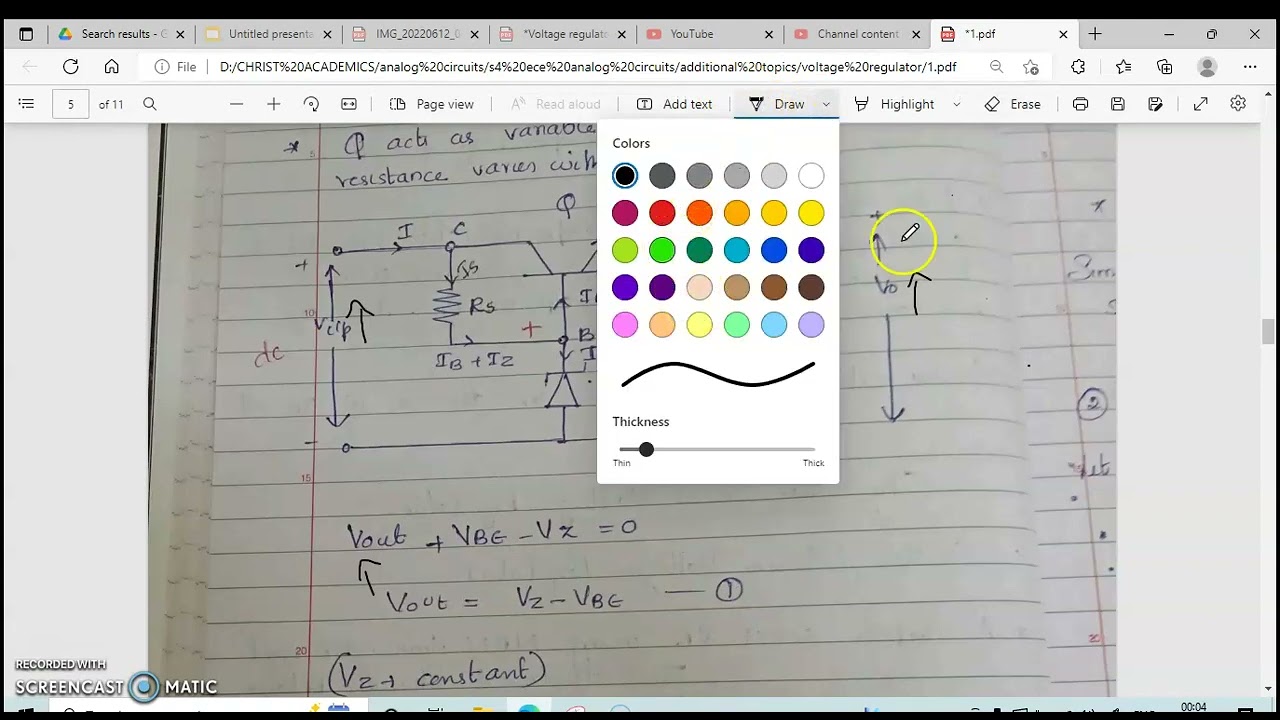 Search results - G
Untitled presenta
IMG_20220612_0
*Voltage regulato
YouTube
Channel content
*1.pdf
File
D:/CHRIST%20ACADEMICS/analog%20circuits/s4%20ece%20analog%20circuits/additional%20topics/voltage%20regulator/1.pdf
5 of 11
Page view
Read aloud
Add text
Draw
Highlight
Erase
Colors
Thickness
Thin
Thick
* Q acts as variable
resistance varies with
Q
I C
+
+
Rs
10
Vi/p
Vo
+ B
dc
IB + IZ
2
-
15
Vout + VBE - VZ = 0
Vout = VZ - VBE — 1
20
(VZ → constant)
RECORDED WITH
SCREENCAST MATIC
00:04